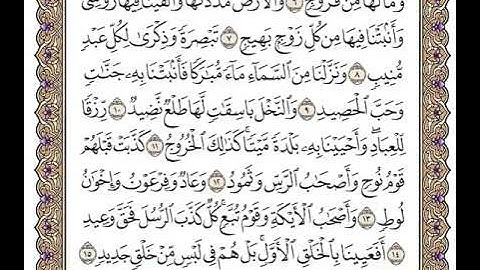 وَمَالَهَا مِن فُرُوجٍ ٦ وَٱلْأَرْضَ مَدَدْنَٰهَا وَأَلْقَيْنَا فِيهَا رَوَٰسِيَ
وَأَنۢبَتْنَا فِيهَا مِن كُلِّ زَوْجٍۭ بَهِيجٍ ٧ تَبْصِرَةً وَذِكْرَىٰ لِكُلِّ عَبْدٍ
مُّنِيبٍ ٨ وَنَزَّلْنَا مِنَ ٱلسَّمَآءِ مَآءً مُّبَٰرَكًا فَأَنۢبَتْنَا بِهِۦ جَنَّٰتٍ
وَحَبَّ ٱلْحَصِيدِ ٩ وَٱلنَّخْلَ بَاسِقَٰتٍ لَّهَا طَلْعٌ نَّضِيدٌ ١٠ رِّزْقًا
لِّلْعِبَادِ ۖ وَأَحْيَيْنَا بِهِۦ بَلْدَةً مَّيْتًا ۚ كَذَٰلِكَ ٱلْخُرُوجُ ١١ كَذَّبَتْ قَبْلَهُمْ
قَوْمُ نُوحٍ وَأَصْحَٰبُ ٱلرَّسِّ وَثَمُودُ ١٢ وَعَادٌ وَفِرْعَوْنُ وَإِخْوَٰنُ
لُوطٍ ١٣ وَأَصْحَٰبُ ٱلْأَيْكَةِ وَقَوْمُ تُبَّعٍ ۚ كُلٌّ كَذَّبَ ٱلرُّسُلَ فَحَقَّ وَعِيدِ
١٤ أَفَعَيِينَا بِٱلْخَلْقِ ٱلْأَوَّلِ ۚ بَلْ هُمْ فِى لَبْسٍ مِّنْ خَلْقٍ جَدِيدٍ ١٥